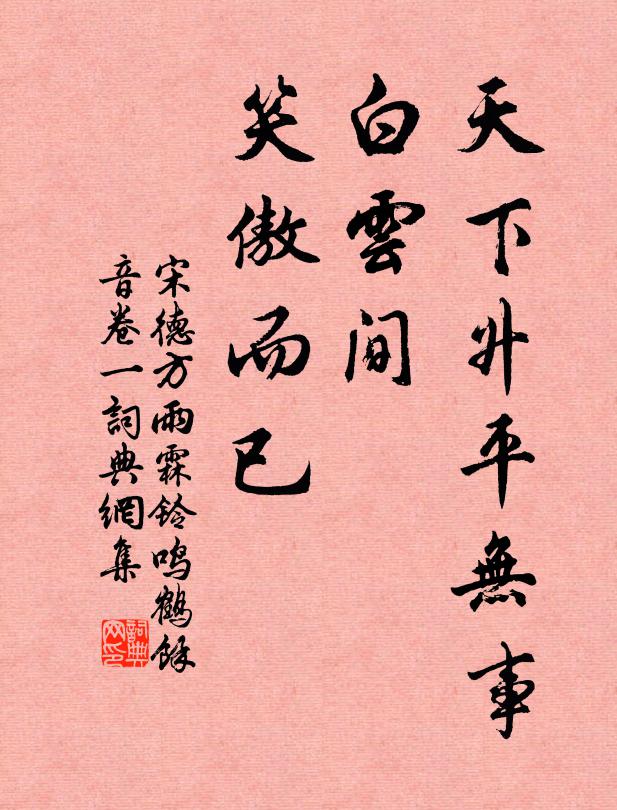 天下升平無事
白雲間
笑傲而已
宋德方雨霖鈴鳴鶴餘
音卷一詞典網集
詞典
网印